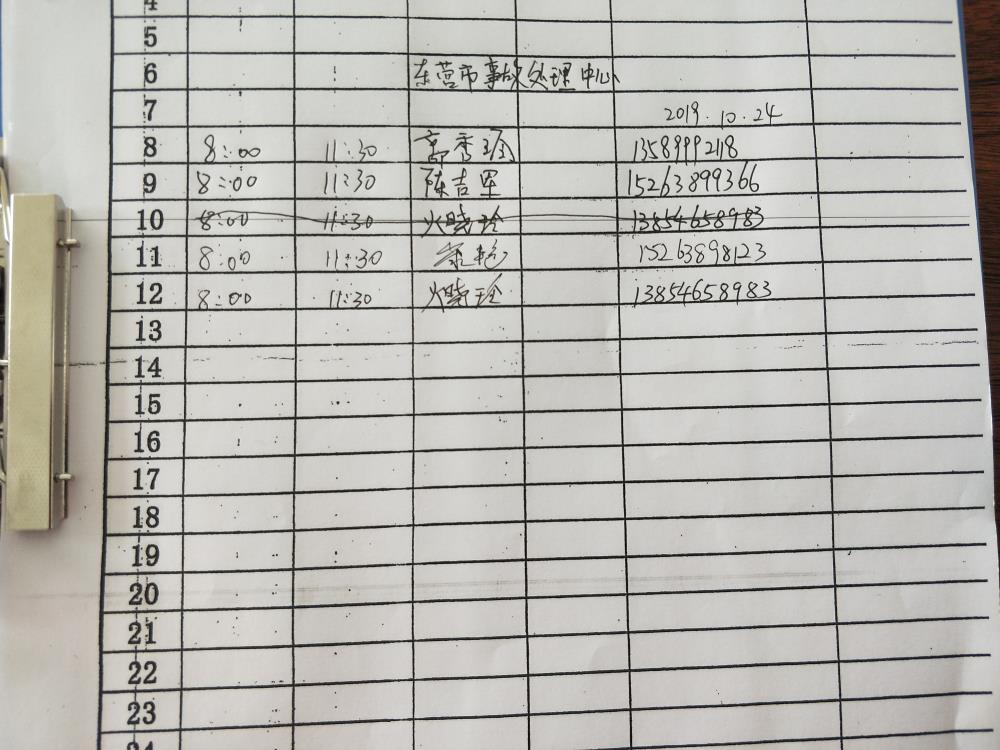 4
5
6 东营市事故处理中心
7 2019.10.24
8 8:00 11:30 高秀 13589992118
9 8:00 11:30 陈吉军 15263899366
10 8:00 11:30 火晓玲 13854658983
11 8:00 11:30 艳 15263898123
12 8:00 11:30 火晓玲 13854658983
13
14
15
16
17
18
19
20
21
22
23
24